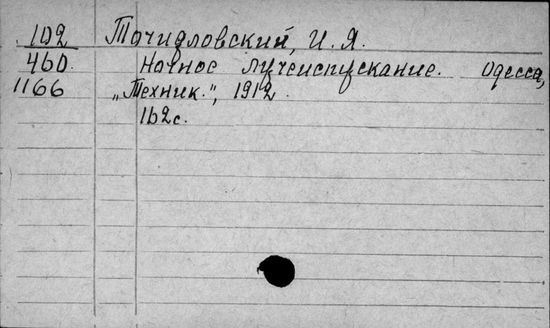 102 Точидловский, И. Я.
460. Ночное лучеиспускание. Одесса,
1166 „Техник.", 1912.
162с.